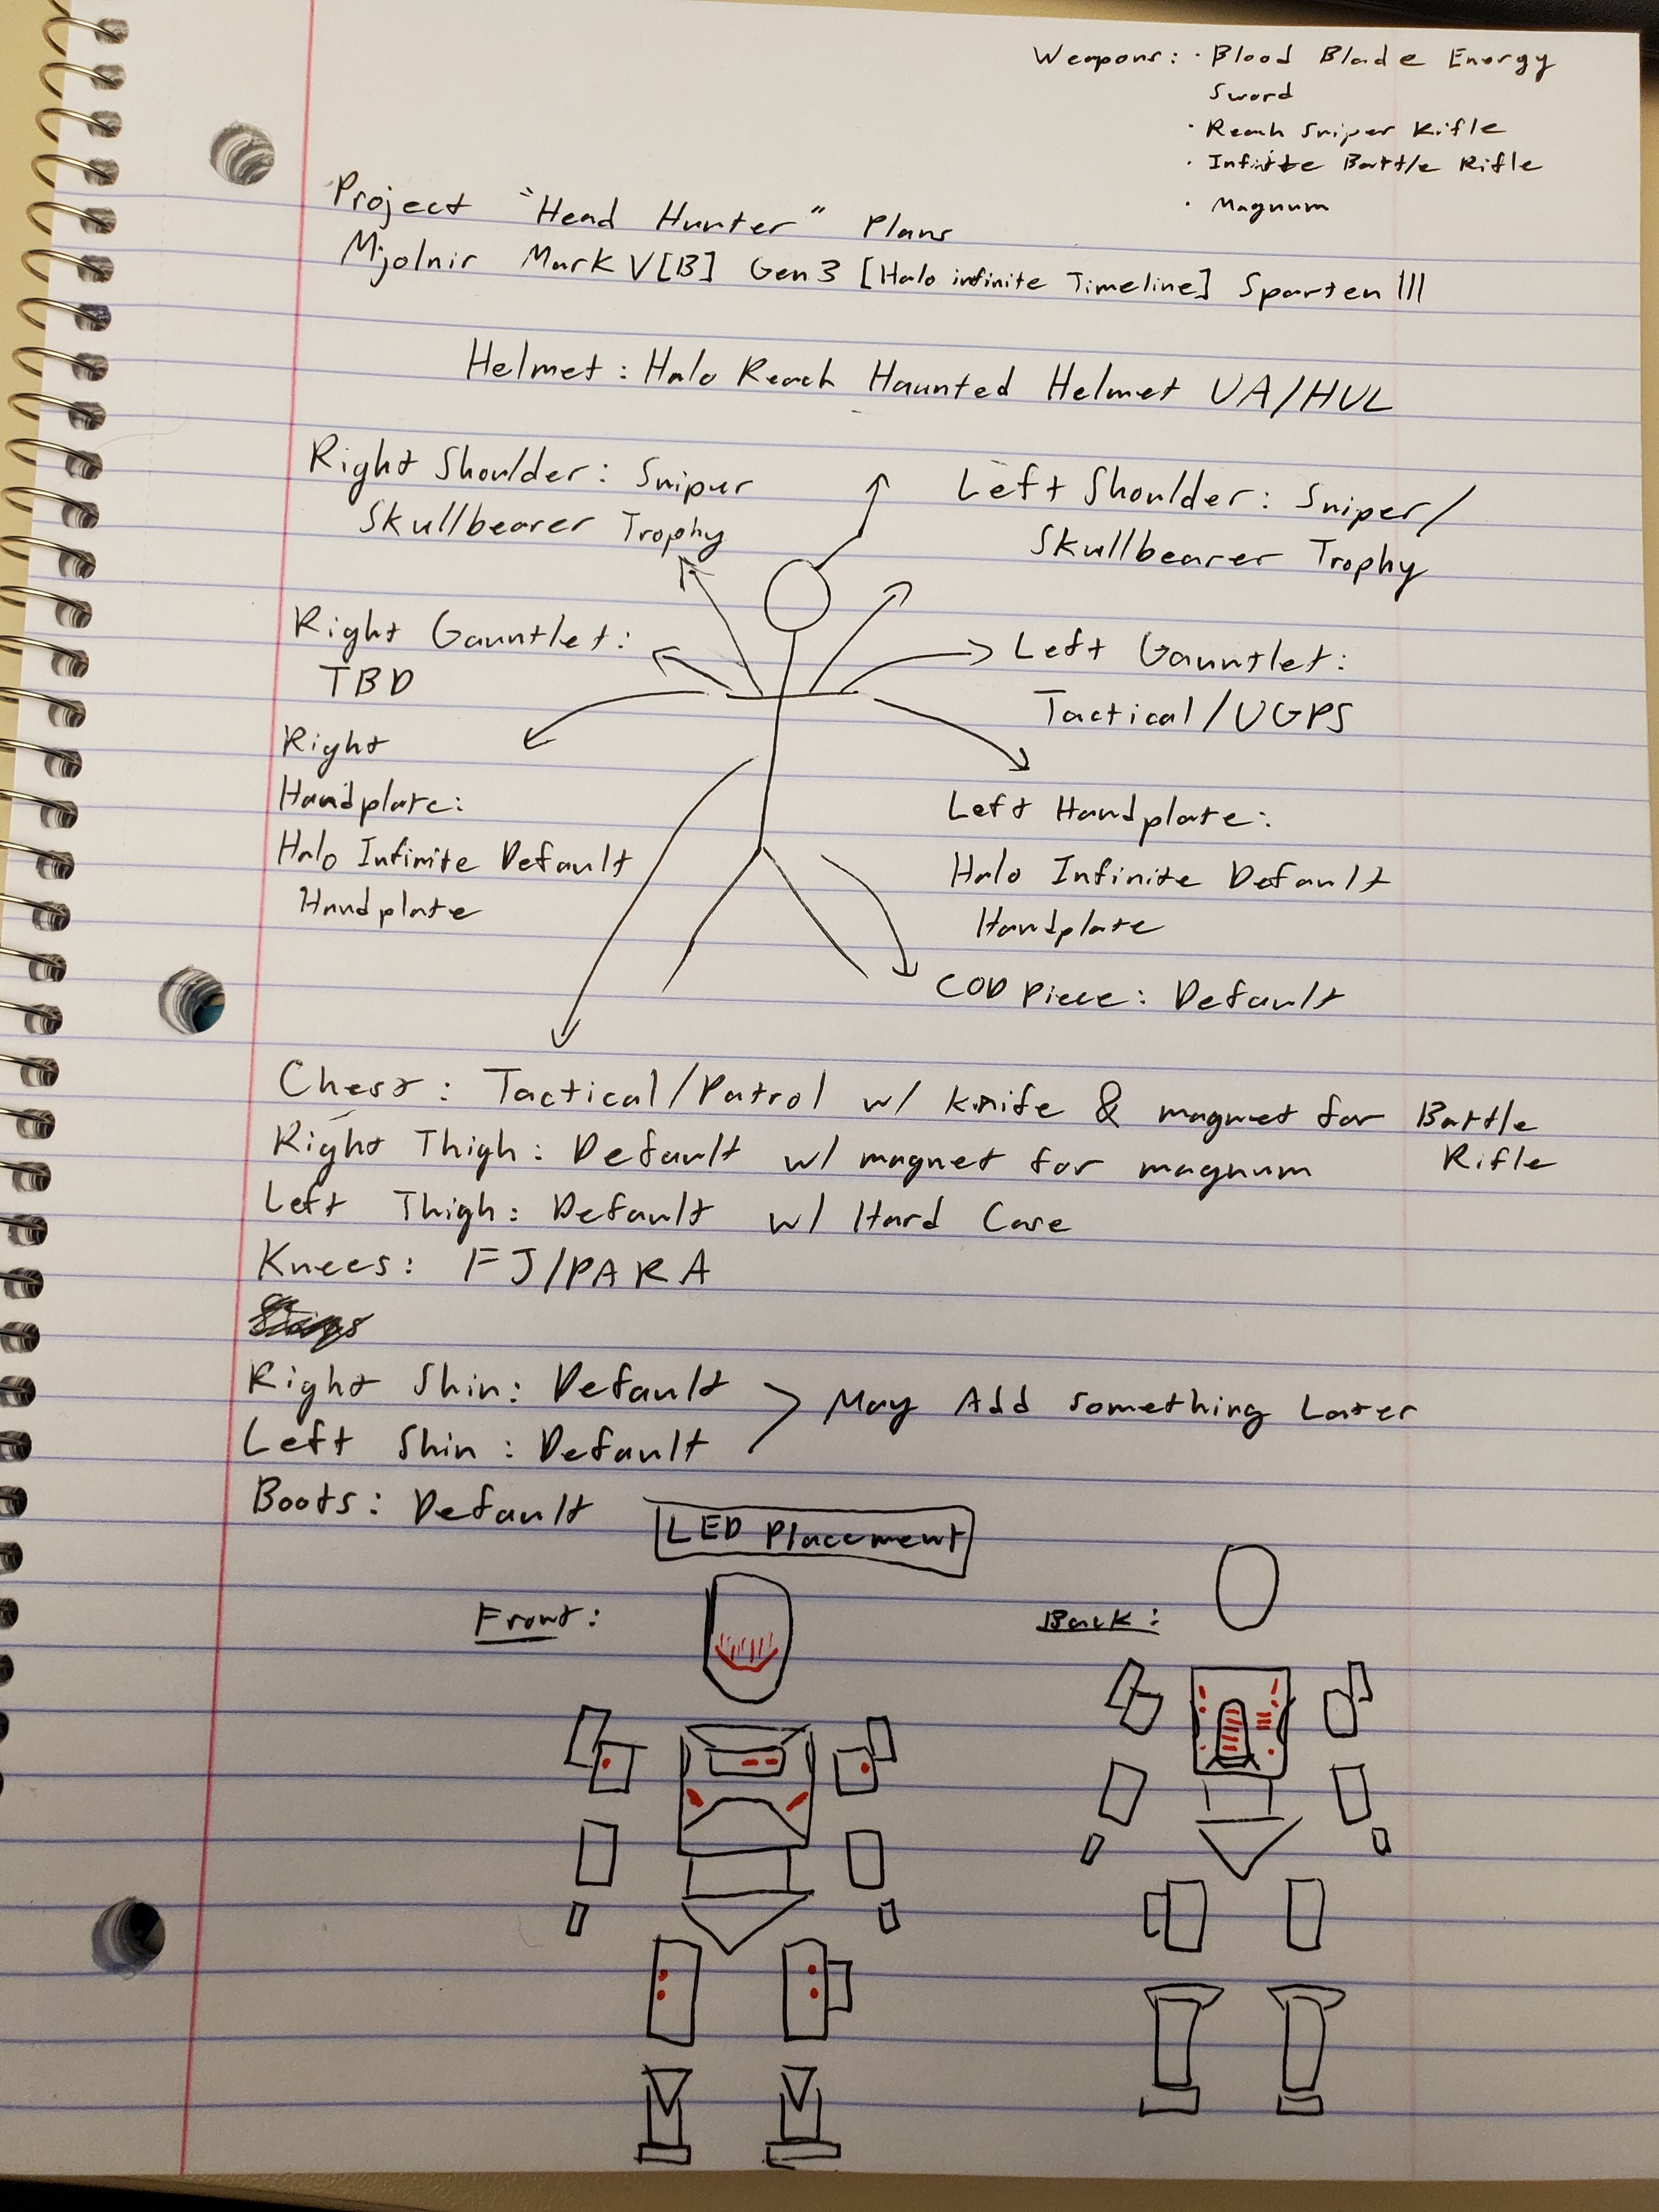 Weapons: · Blood Blade Energy
Sword
· Reach Sniper Rifle
· Infinite Battle Rifle
· Magnum
Project "Head Hunter" Plans
Mjolnir Mark V[B] Gen 3 [Halo infinite Timeline] Sparten III
Helmet: Halo Reach Haunted Helmet UA/HUL
Right Shoulder: Sniper
Skullbearer Trophy
Left Shoulder: Sniper/
Skullbearer Trophy
Right Gauntlet:
TBD
Left Gauntlet:
Tactical/UGPS
Right
Handplate:
Halo Infinite Default
Handplate
Left Handplate:
Halo Infinite Default
Handplate
COD Piece: Default
Chest: Tactical/Patrol w/ knife & magnet for Battle
Rifle
Right Thigh: Default w/ magnet for magnum
Left Thigh: Default w/ Hard Case
Knees: FJ/PARA
Right Shin: Default > May Add Something Later
Left Shin: Default
Boots: Default
LED Placement
Front:
Back: